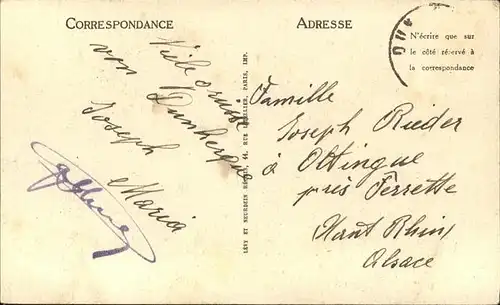 CORRESPONDANCE
ADRESSE
N'écrire que sur
le côté réservé à
la correspondance
Viele Grüsse
von Dunkerque
Joseph Maria
LÉVY ET NEURDEIN RÉUNIS, 44, RUE LETELLIER, PARIS, IMP.
Famille
Joseph Rieder
à Oltingue
près Ferrette
(Haut Rhin)
Alsace